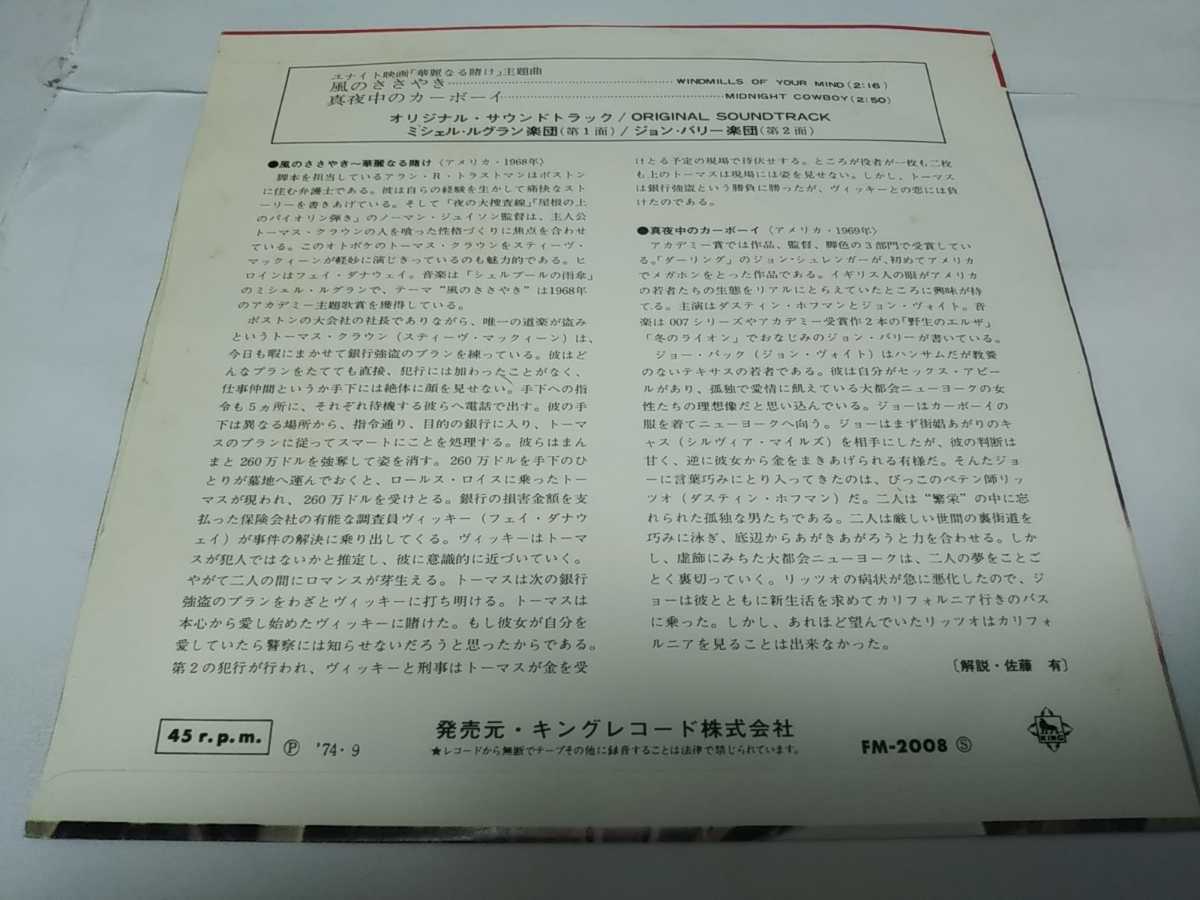 ユナイト映画「華麗なる賭け」主題曲
風のささやき……WINDMILLS OF YOUR MIND(2:16)
真夜中のカーボーイ……MIDNIGHT COWBOY(2:50)
オリジナル・サウンドトラック/ORIGINAL SOUNDTRACK
ミシェル・ルグラン楽団(第1面)/ジョン・バリー楽団(第2面)
●風のささやき〜華麗なる賭け〈アメリカ・1968年〉
脚本を担当しているアラン・R・トラストマンはボストン
に住む弁護士である。彼は自らの経験を生かして痛快なスト
ーリーを書きあげている。そして「夜の大捜査線」「屋根の上
のバイオリン弾き」のノーマン・ジェイソン監督は、主人公
トーマス・クラウンの人を喰った性格づくりに焦点を合わせ
ている。このオトボケのトーマス・クラウンをスティーヴ・
マックィーンが軽妙に演じきっているのも魅力的である。ヒ
ロインはフェイ・ダナウェイ。音楽は「シェルブールの雨傘」
のミシェル・ルグランで、テーマ“風のささやき”は1968年
のアカデミー主題歌賞を獲得している。
ボストンの大会社の社長でありながら、唯一の道楽が盗み
というトーマス・クラウン(スティーヴ・マックィーン)は、
今日も暇にまかせて銀行強盗のプランを練っている。彼はど
んなプランをたてても直接、犯行には加わったことがなく、
仕事仲間というか手下には絶体に顔を見せない。手下への指
令も5ヵ所に、それぞれ待機する彼らへ電話で出す。彼の手
下は異なる場所から、指令通り、目的の銀行に入り、トーマ
スのプランに従ってスマートにことを処理する。彼らはまん
まと260万ドルを強奪して姿を消す。260万ドルを手下のひ
とりが墓地へ運んでおくと、ロールス・ロイスに乗ったトー
マスが現われ、260万ドルを受けとる。銀行の損害金額を支
払った保険会社の有能な調査員ヴィッキー(フェイ・ダナウ
ェイ)が事件の解決に乗り出してくる。ヴィッキーはトーマ
スが犯人ではないかと推定し、彼に意識的に近づいていく。
やがて二人の間にロマンスが芽生える。トーマスは次の銀行
強盗のプランをわざとヴィッキーに打ち明ける。トーマスは
本心から愛し始めたヴィッキーに賭けた。もし彼女が自分を
愛していたら警察には知らせないだろうと思ったからである。
第2の犯行が行われ、ヴィッキーと刑事はトーマスが金を受
けとる予定の現場で待伏せする。ところが役者が一枚も二枚
も上のトーマスは現場には姿を見せない。しかし、トーマス
は銀行強盗という勝負に勝ったが、ヴィッキーとの恋には負
けたのである。
●真夜中のカーボーイ〈アメリカ・1969年〉
アカデミー賞では作品、監督、脚色の3部門で受賞してい
る。「ダーリング」のジョン・シュレンガーが、初めてアメリカ
でメガホンをとった作品である。イギリス人の眼がアメリカ
の若者たちの生態をリアルにとらえていたところに興味が持
てる。主演はダスティン・ホフマンとジョン・ヴォイト。音
楽は007シリーズやアカデミー受賞作2本の「野生のエルザ」
「冬のライオン」でおなじみのジョン・バリーが書いている。
ジョー・バック(ジョン・ヴォイト)はハンサムだが教養
のないテキサスの若者である。彼は自分がセックス・アピー
ルがあり、孤独で愛情に飢えている大都会ニューヨークの女
性たちの理想像だと思い込んでいる。ジョーはカーボーイの
服を着てニューヨークへ向う。ジョーはまず街娼あがりのキ
ャス(シルヴィア・マイルズ)を相手にしたが、彼の判断は
甘く、逆に彼女から金をまきあげられる有様だ。そんたジョ
ーに言葉巧みにとり入ってきたのは、びっこのペテン師リッ
ツオ(ダスティン・ホフマン)だ。二人は“繁栄”の中に忘
れられた孤独な男たちである。二人は厳しい世間の裏街道を
巧みに泳ぎ、底辺からあがきあがろうと力を合わせる。しか
し、虚飾にみちた大都会ニューヨークは、二人の夢をことご
とく裏切っていく。リッツオの病状が急に悪化したので、ジ
ョーは彼とともに新生活を求めてカリフォルニア行きのバス
に乗った。しかし、あれほど望んでいたリッツオはカリフォ
ルニアを見ることは出来なかった。
〔解説・佐藤 有〕
45 r.p.m.
Ⓟ '74・9
発売元・キングレコード株式会社
★レコードから無断でテープその他に録音することは法律で禁じられています。
FM-2008 Ⓢ
KING